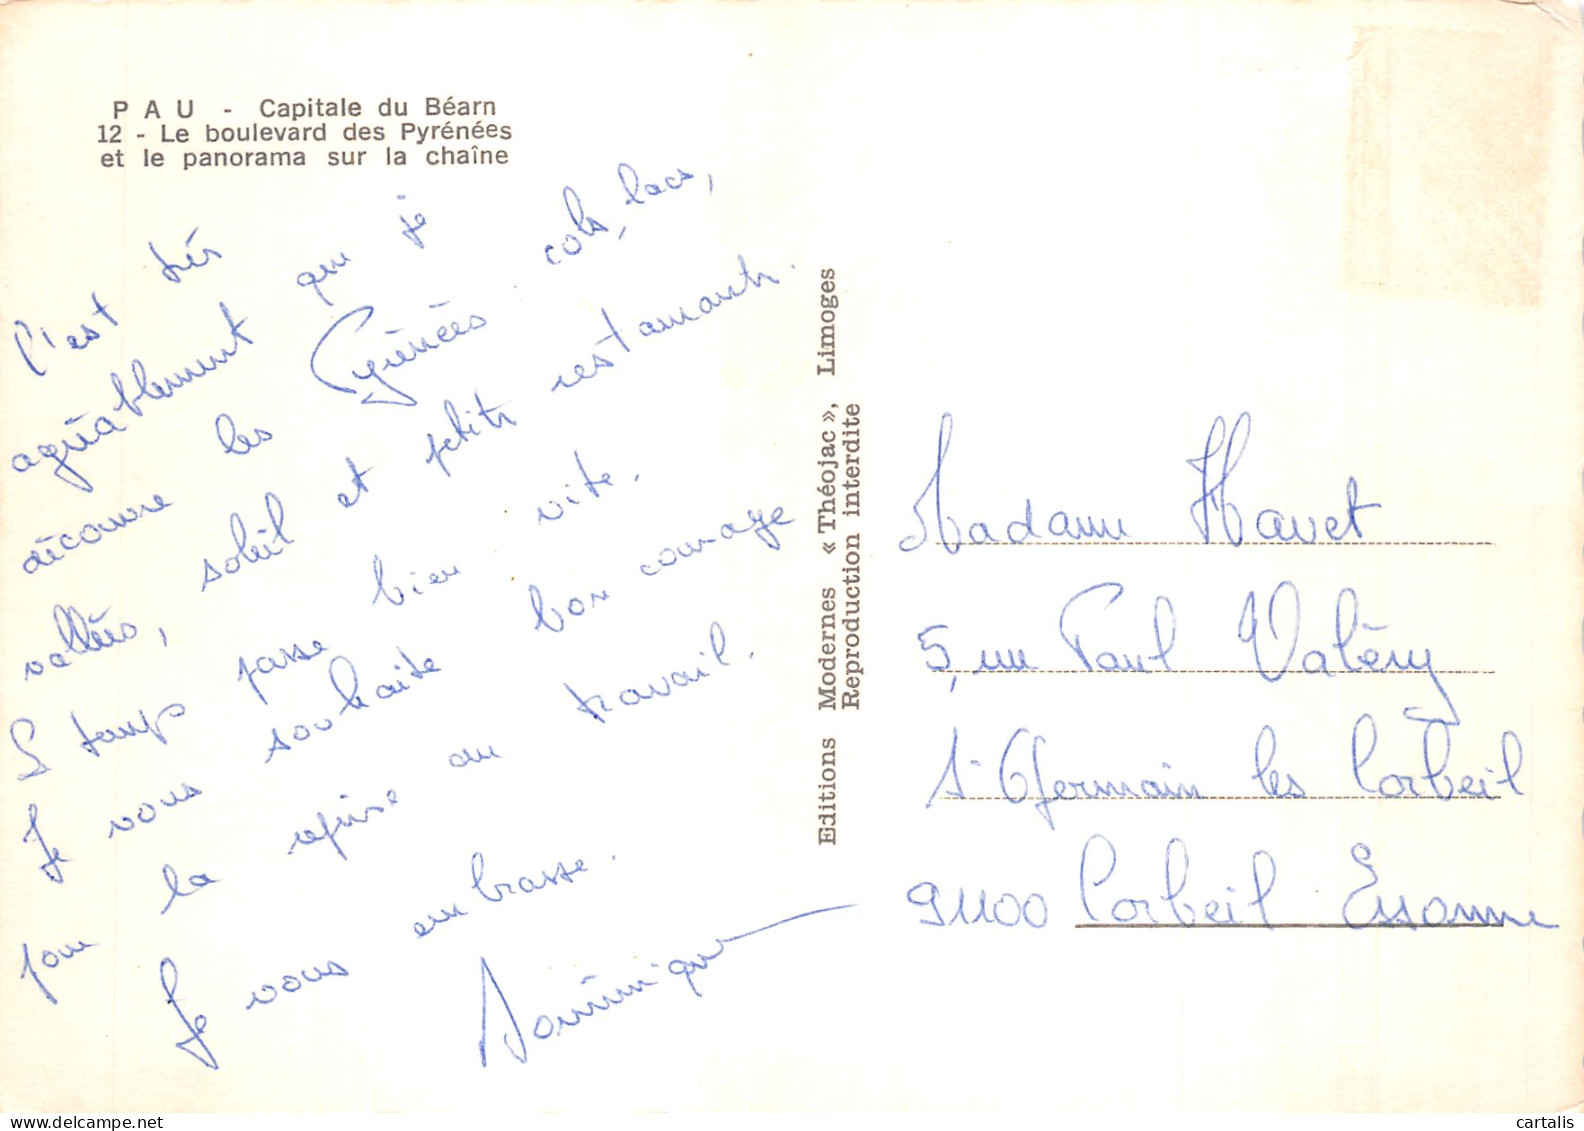 P A U - Capitale du Béarn
12 - Le boulevard des Pyrénées
et le panorama sur la chaîne
C'est très
agréablement que je
découvre les Pyrénées cols, lacs,
vallées, soleil et petits restaurants.
Le temps passe bien vite.
Je vous souhaite bon courage
pour la reprise au travail.
Je vous embrasse.
Dominique
Editions Modernes « Théojac », Limoges
Reproduction interdite
Madame Havet
5, rue Paul Valéry
St Germain les Corbeil
91100 Corbeil Essonne
cartalis